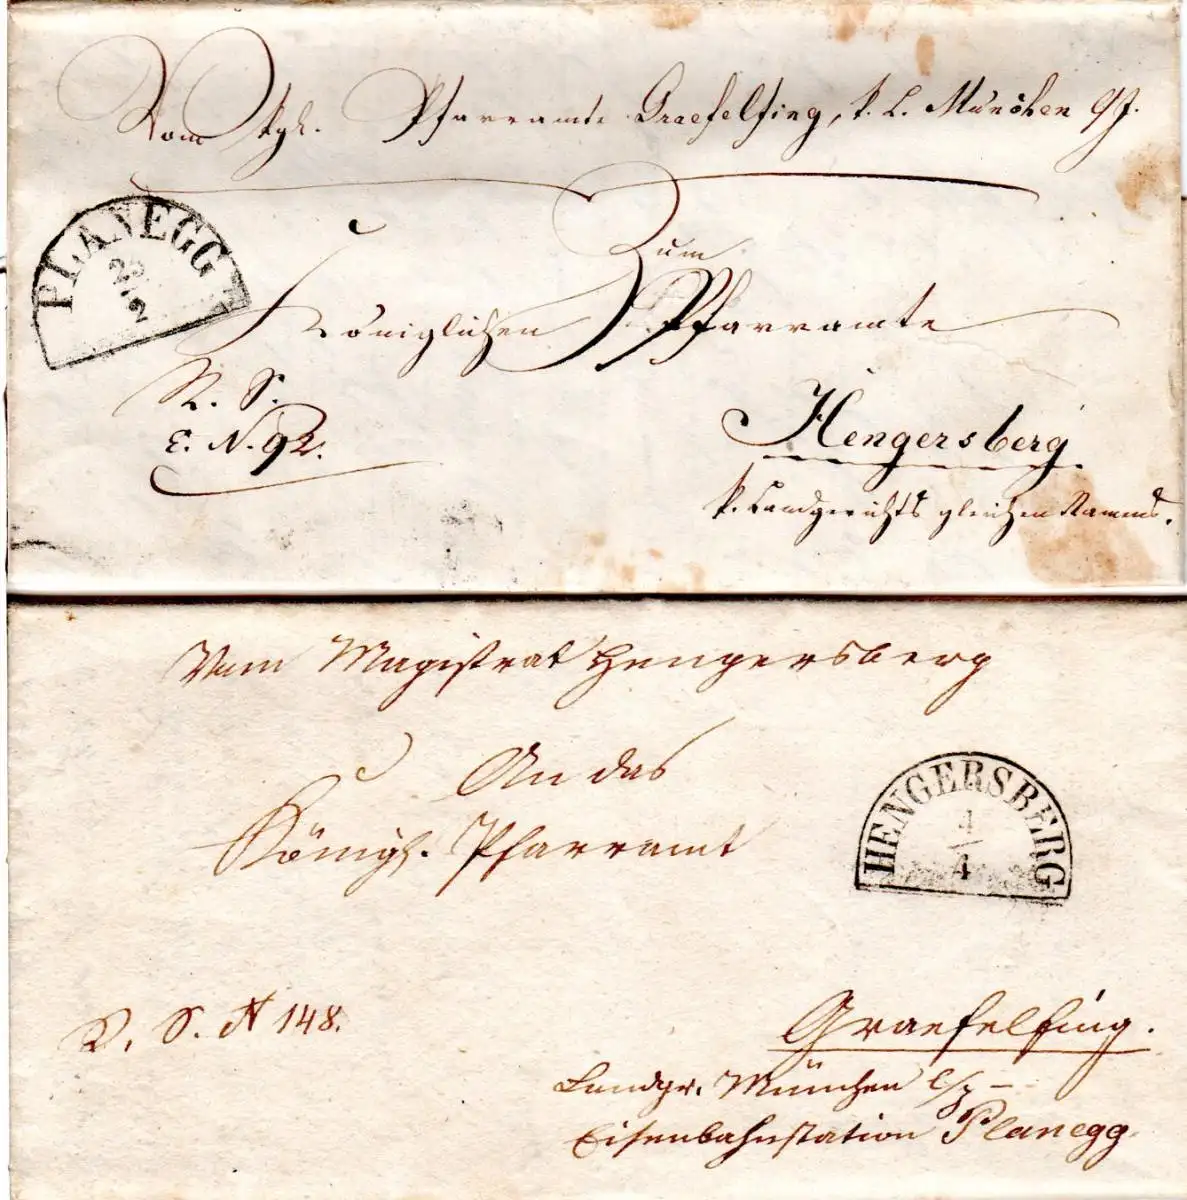 Vom kgl. Pfarramte Graefelfing, k. L. München
Zum
Königlichen Pfarramte
PLANEGG
2
R. S.
E. N. 92.
Hengersberg
k. Landgerichts gleichen Namens.
Vom Magistrat Hengersberg
An das
Königl. Pfarramt
HENGERSBERG
4
R. S. N 148.
Graefelfing.
Landgr. München
Eisenbahnstation Planegg.